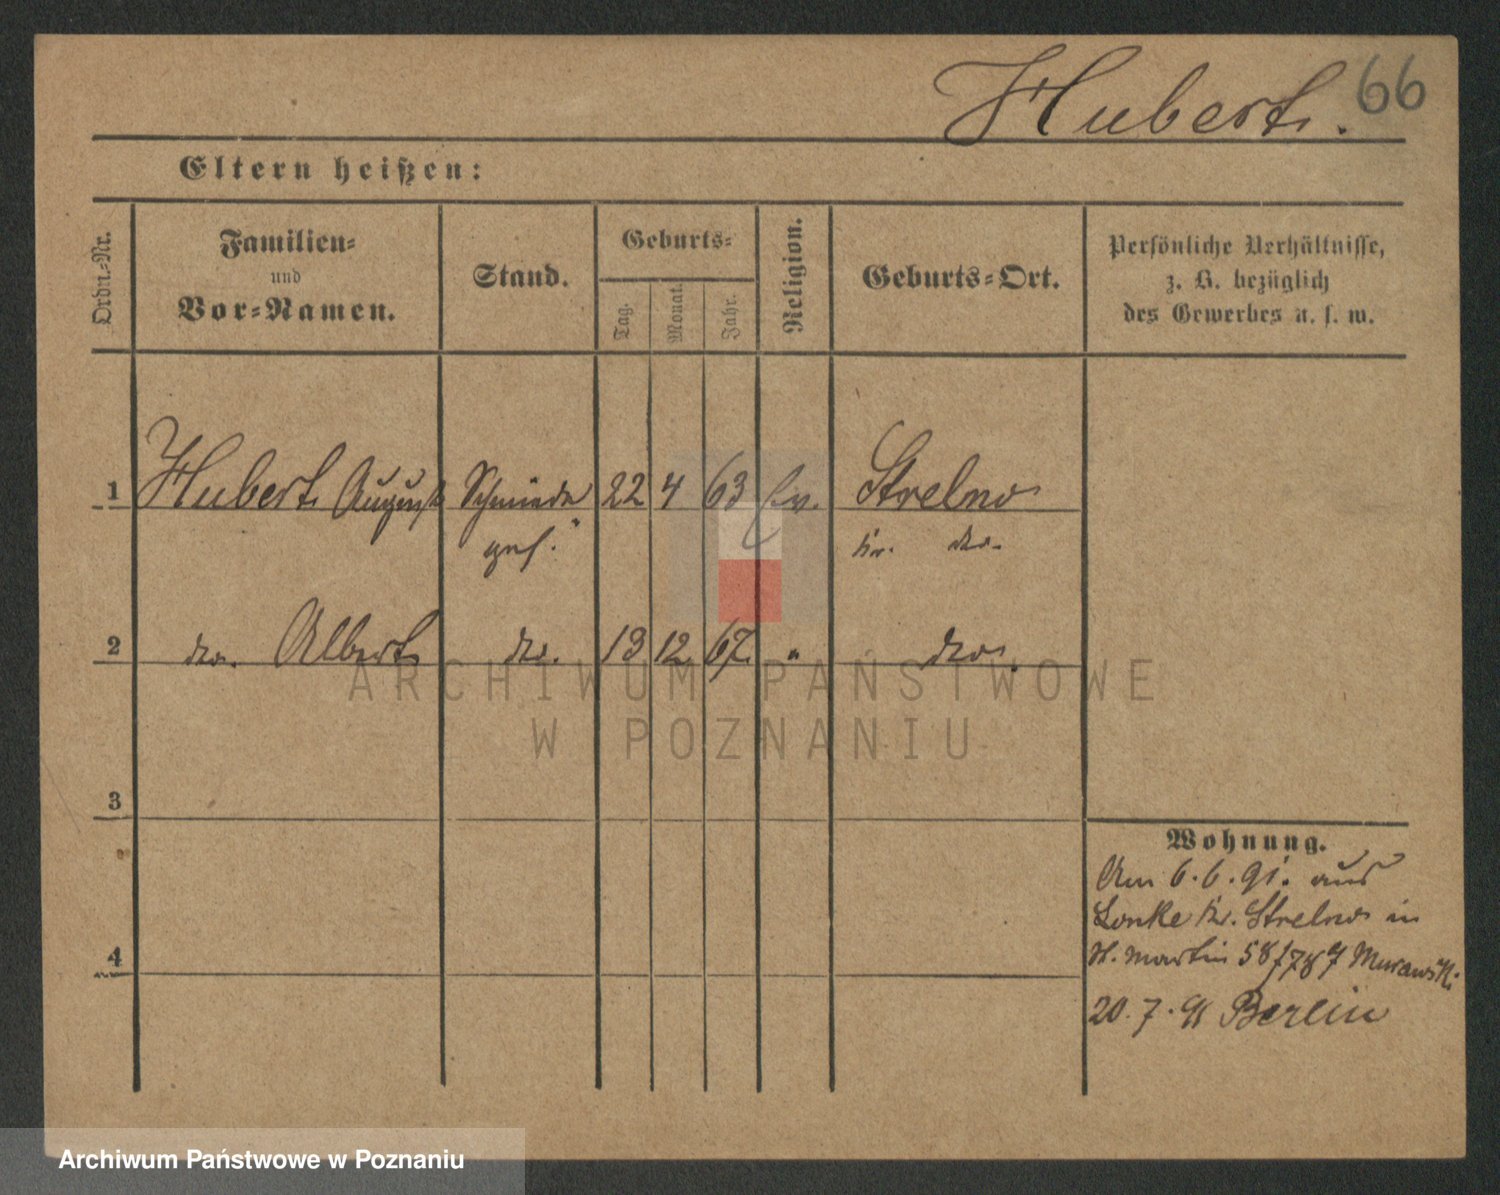 Hubert. 66
Eltern heißen:
Ordn.-Nr.
Familien-
und
Vor-Namen.
Stand.
Geburts-
Tag.
Monat.
Jahr.
Religion.
Geburts-Ort.
Persönliche Verhältnisse,
z. B. bezüglich
des Gewerbes u. s. w.
1 Hubert August Schmiede 22 4 63 Ev. Strelno
ges. Kr. do.
2 do. Albert do. 13 12 67. " do.
3
4
Wohnung.
Am 6.6.91. aus
Lonke Kr. Strelno in
St. Martin 58/787
20.7.91 Berlin
ARCHIWUM PAŃSTWOWE
W POZNANIU
Archiwum Państwowe w Poznaniu